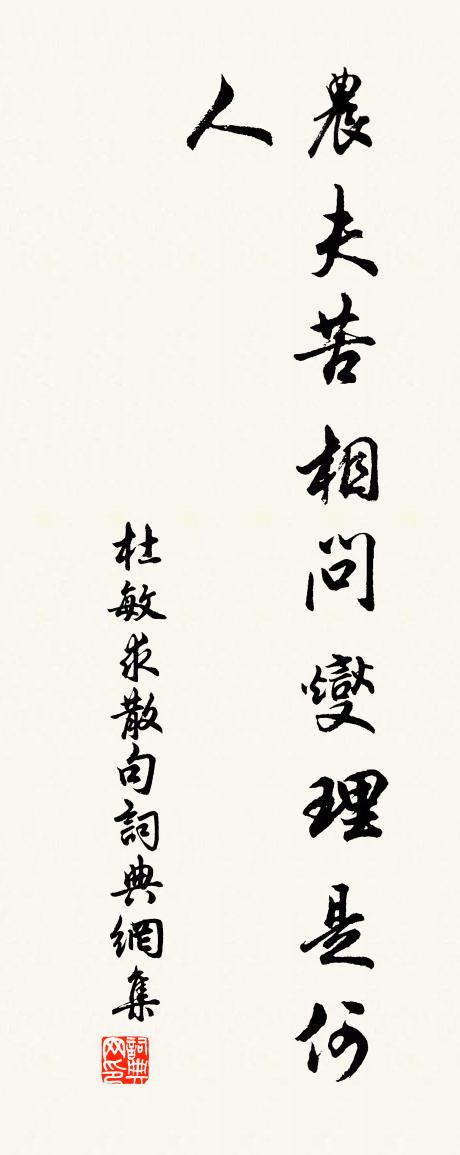 農夫苦相問燮理是何
人
杜敏求散句詞典網集
詞典网印